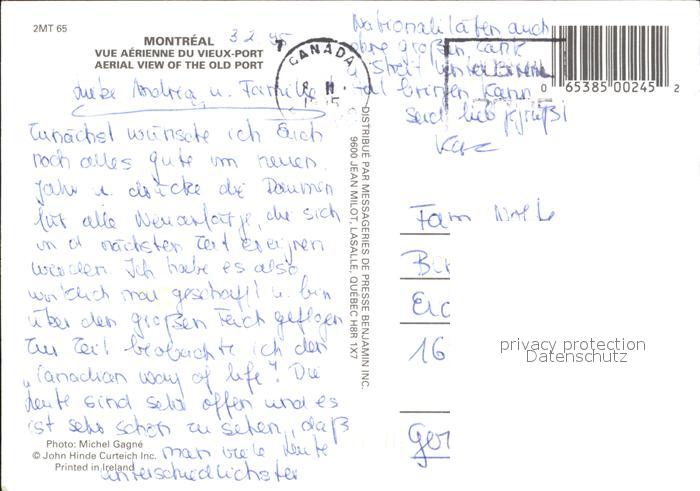 2MT 65
MONTRÉAL
VUE AÉRIENNE DU VIEUX-PORT
AERIAL VIEW OF THE OLD PORT
3.2.95
Liebe Andrea u. Familie
Zunächst wünsche ich Euch
noch alles gute im neuen
Jahr u. drücke die Daumen
für alle Neuanfänge, die sich
in d nächsten Zeit ereignen
werden. Ich habe es also
wirklich mal geschafft u. bin
über den großen Teich geflogen
Zur Zeit beobachte ich den
"Canadian way of life". Die
Leute sind sehr offen und es
ist sehr schön zu sehen, daß
man viele Leute
unterschiedlichster
Nationalitäten auch
ohne großen Zank
u. Streit unter einen
Hut bringen kann
Seid lieb gegrüßt
CANADA
0 65385 00245 2
DISTRIBUÉ PAR MESSAGERIES DE PRESSE BENJAMIN INC.
9600 JEAN MILOT, LASALLE, QUÉBEC H8R 1X7
Fam
16
Ger
privacy protection
Datenschutz
Photo: Michel Gagné
© John Hinde Curteich Inc.
Printed in Ireland